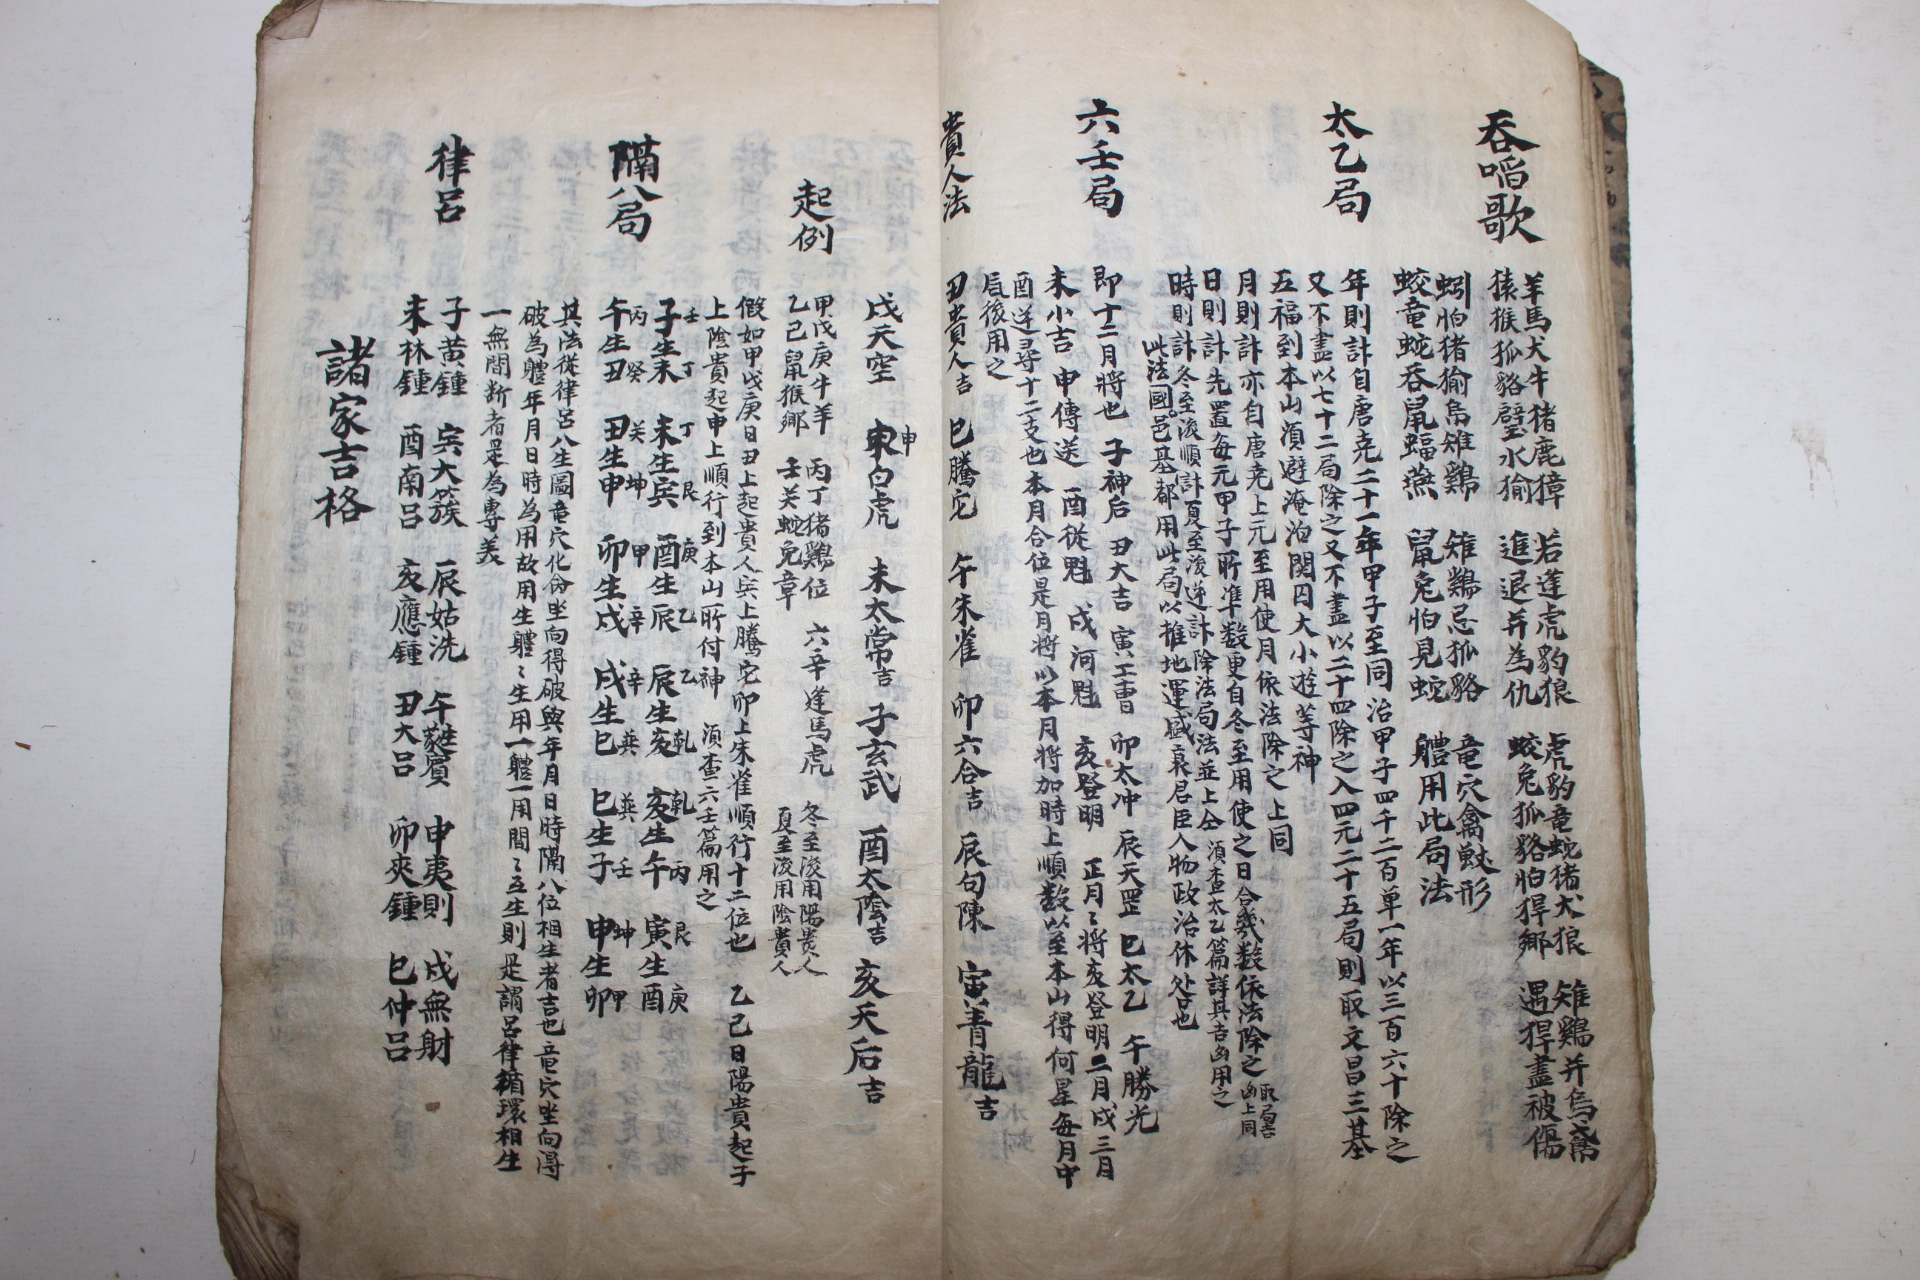 吞啗歌
羊馬犬牛猪鹿獐 若逢虎豹狼 虎豹竜蛇猪犬狼 雉鷄并烏鳶
猿猴狐貉壁水貐 進退并為仇 蛟兔狐貉怕猂鄉 遇猂盡被傷
蚓怕猪貐梟雉鷄 雉鷄忌狐貉 竜穴禽獸形
蛟竜蛇吞鼠蝠燕 鼠兔怕見蛇 軆用此局法
太乙局
年則計自唐堯二十一年甲子至同治甲子四千二百単一年以三百六十除之
又不盡以七十二局除之又不盡以二十四除之入四元二十五局則取文昌三基
五福到本山湏避淹泊関囚大小遊等神
月則計亦自唐堯上元至用使月依法除之上同
日則計先置每元甲子所凖数更自冬至用使之日合幾数依法除之 取局吉凶上同
時則計冬至後順計夏至後逆計除法局法並上仝 湏查太乙篇詳其吉凶用之
此法國邑基都用此局以推地運盛衰君臣人物政治休咎也
六壬局
即十二月將也 子神后 丑大吉 寅壬曺 卯太冲 辰天罡 巳太乙 午勝光
未小吉 申傳送 酉從魁 戌河魁 亥登明 正月〻將亥登明二月戌三月
酉逆尋十二支也本月合位是月將以本月將加時上順数以至本山得何星每月中
辰後用之
貴人法
丑貴人吉 巳騰它 午朱雀 卯六合吉 辰句陳 寅青龍吉
戌天空 申白虎 未太常吉 子玄武 酉太陰吉 亥天后吉
起例
甲戊庚牛羊 丙丁猪鷄位 六辛逢馬虎 冬至後用陽貴人
乙己鼠猴鄉 壬癸蛇兔章 夏至後用陰貴人
假如甲戊庚日丑上起貴人寅上騰它卯上朱雀順行十二位也 乙己日陽貴起子
上陰貴起申上順行到本山所付神 湏查六壬篇用之
隔八局
壬子生未丁 丁未生寅艮 庚酉生辰乙 乙辰生亥乾 乾亥生午丙 艮寅生酉庚
丙午生丑癸 癸丑生申坤 甲卯生戌辛 辛戌生巳巽 巽巳生子壬 坤申生卯甲
其法從律呂八生圖竜穴化份坐向得破與年月日時隔八位相生者吉也竜穴坐向得
破為軆年月日時為用故用生軆〻生用一軆一用間〻互生則是謂呂律循環相生
一無間断者是為專美
律呂
子黃鍾 寅大簇 辰姑洗 午蕤賓 申夷則 戌無財
未林鍾 酉南呂 亥應鍾 丑大呂 卯夾鍾 巳仲呂
諸家吉格